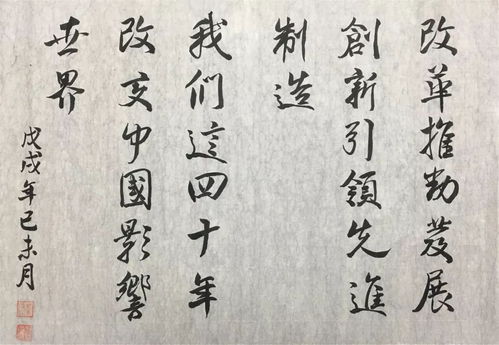 改革推動發展
創新引領先進
制造
我们這四十年
改变中國影響
世界
戊戌年己未月